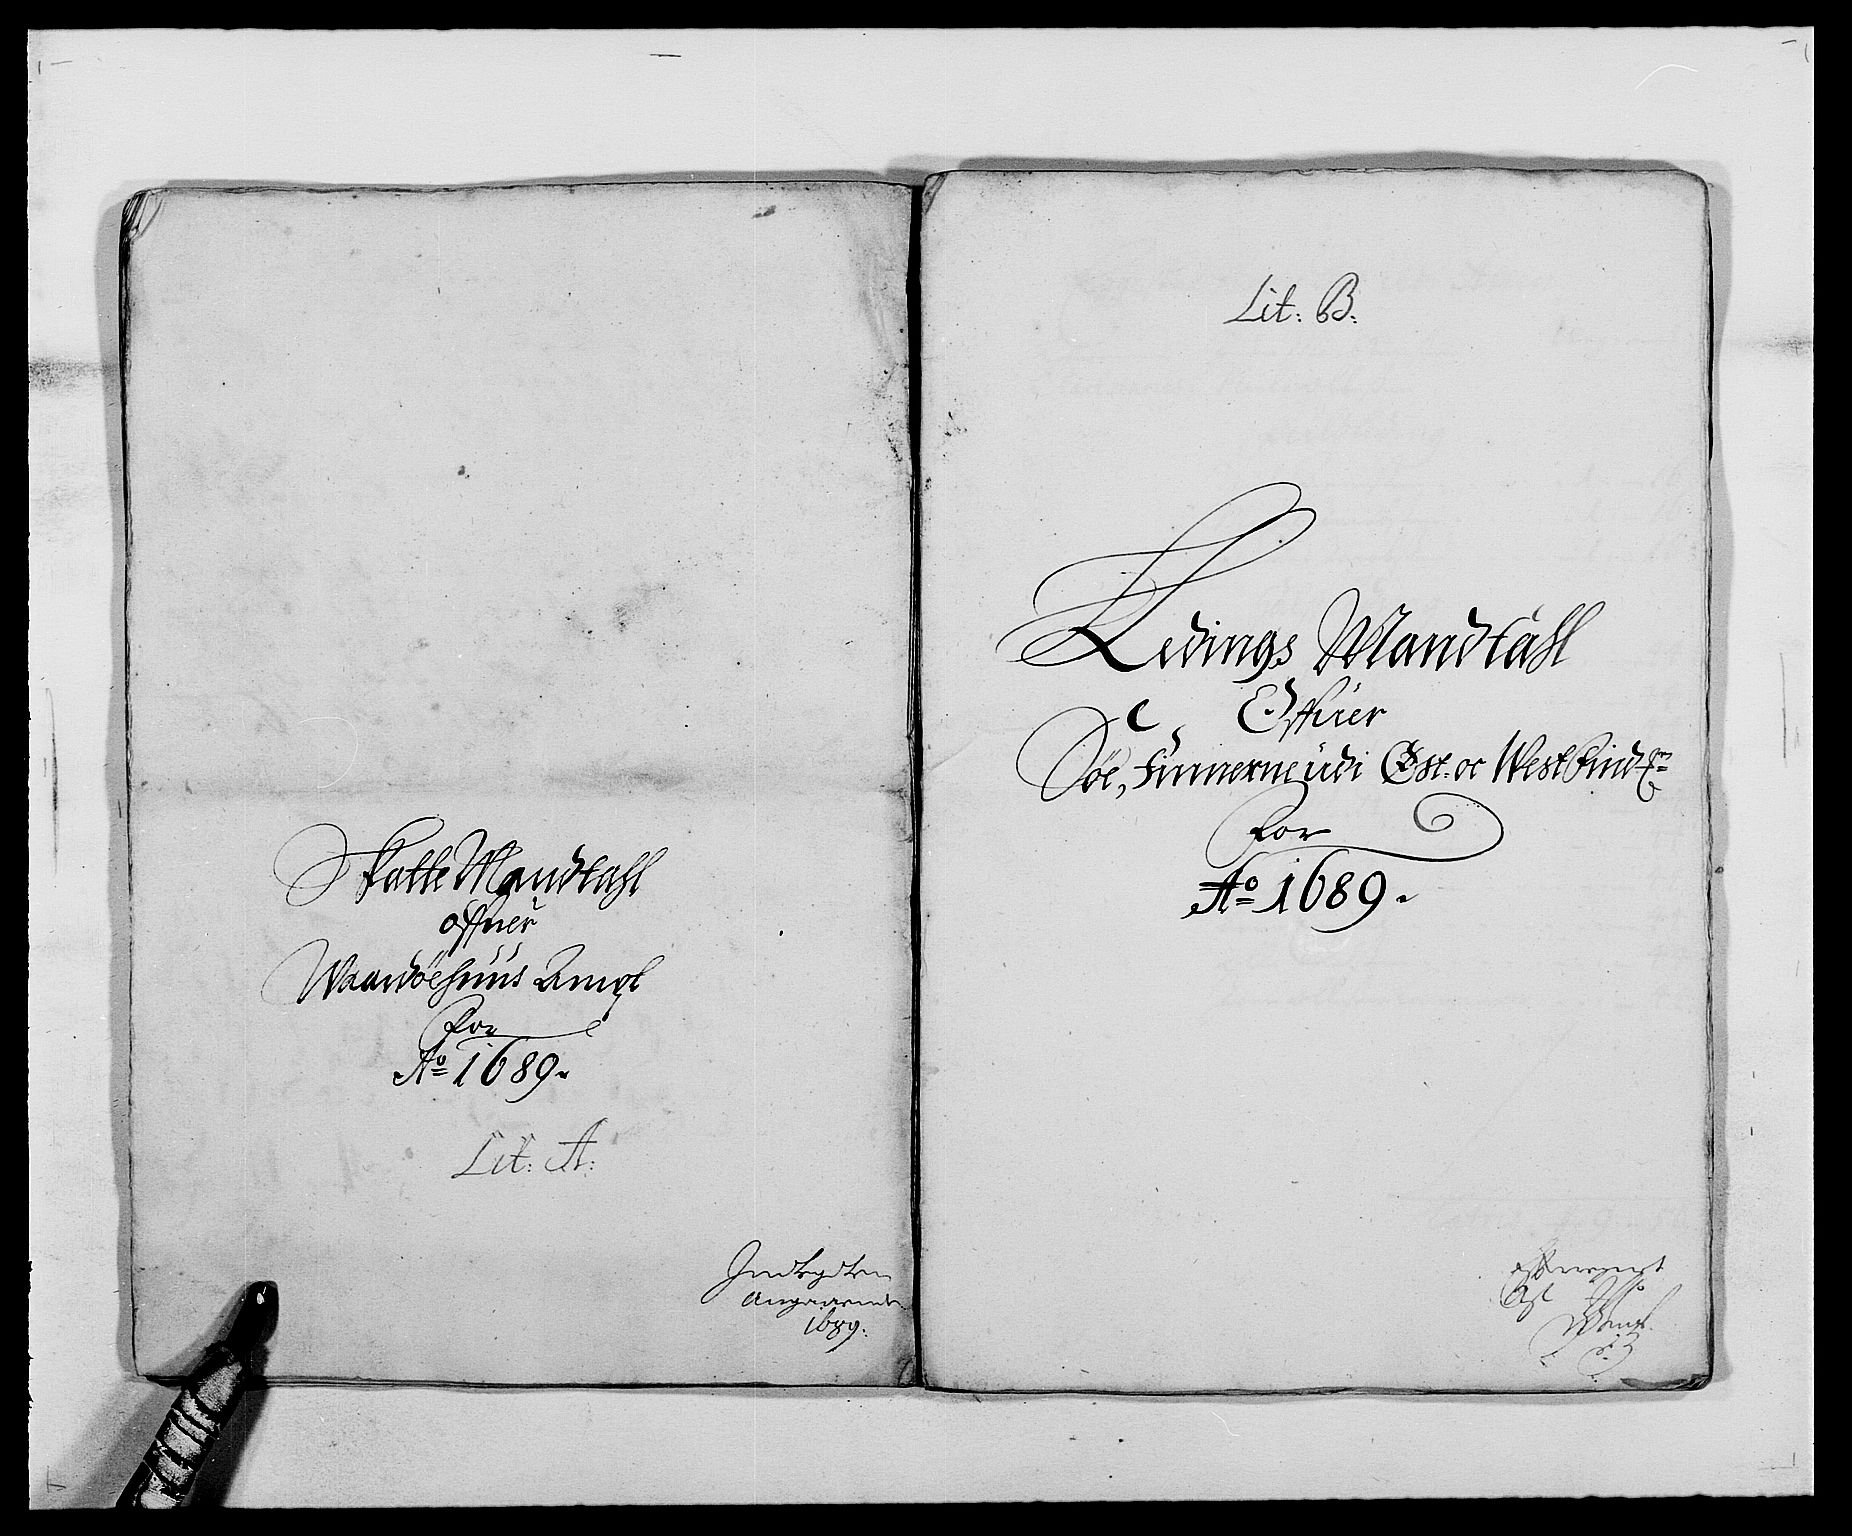 Skatte Mandtahl
offuer
Waardøehuus Ampt
for
Ao 1689.
Lit: A:
Indtegten
Angaaende
1689:
Lit: B:
Ledings Mandtahl
Offuer
Søe, Finnerne udi Øst. oc West Find
for
Ao 1689.